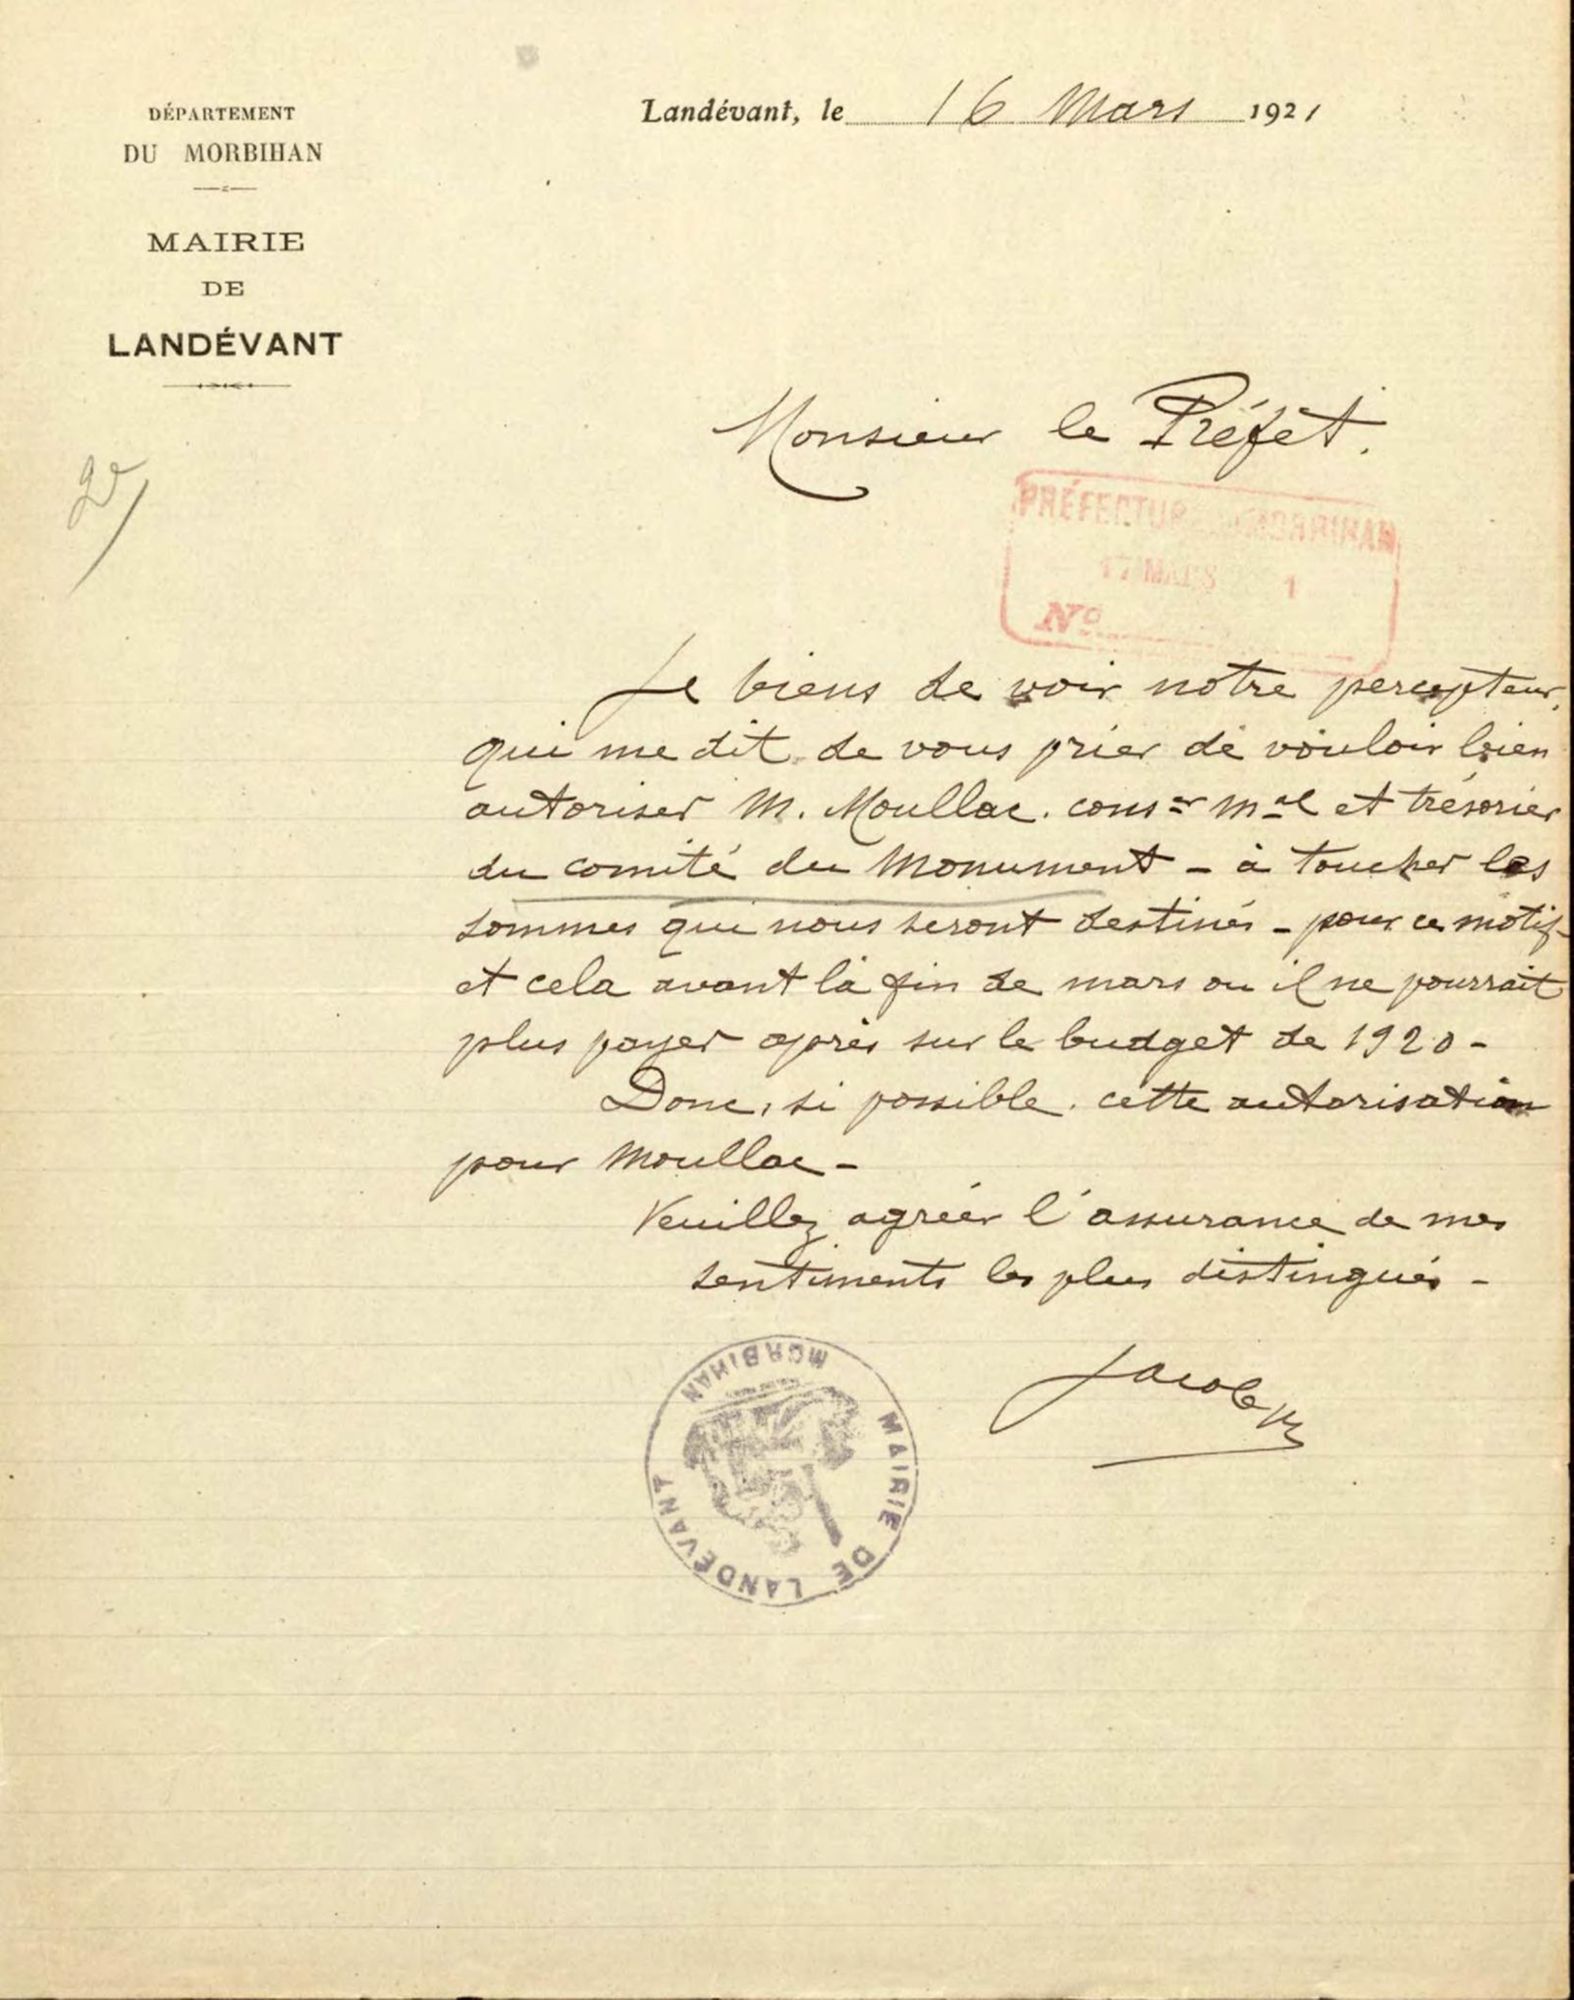 DÉPARTEMENT
DU MORBIHAN
MAIRIE
DE
LANDÉVANT
Landévant, le 16 Mars 1921
Monsieur le Préfet.
PRÉFECTUR MORBIHAN
17 MARS 1
No
Je viens de voir notre percepteur,
qui me dit de vous prier de vouloir bien
autoriser M. Moullac. conser mal et trésorier
du comité du Monument - à toucher les
sommes qui nous seront destinés - pour ce motif -
et cela avant la fin de mars ou il ne pourrait
plus payer après sur le budget de 1920 -
Donc, si possible. cette autorisation
pour Moullac -
Veuillez agréer l'assurance de mes
sentiments les plus distingués -
Jacob
MAIRIE DE LANDÉVANT
MORBIHAN